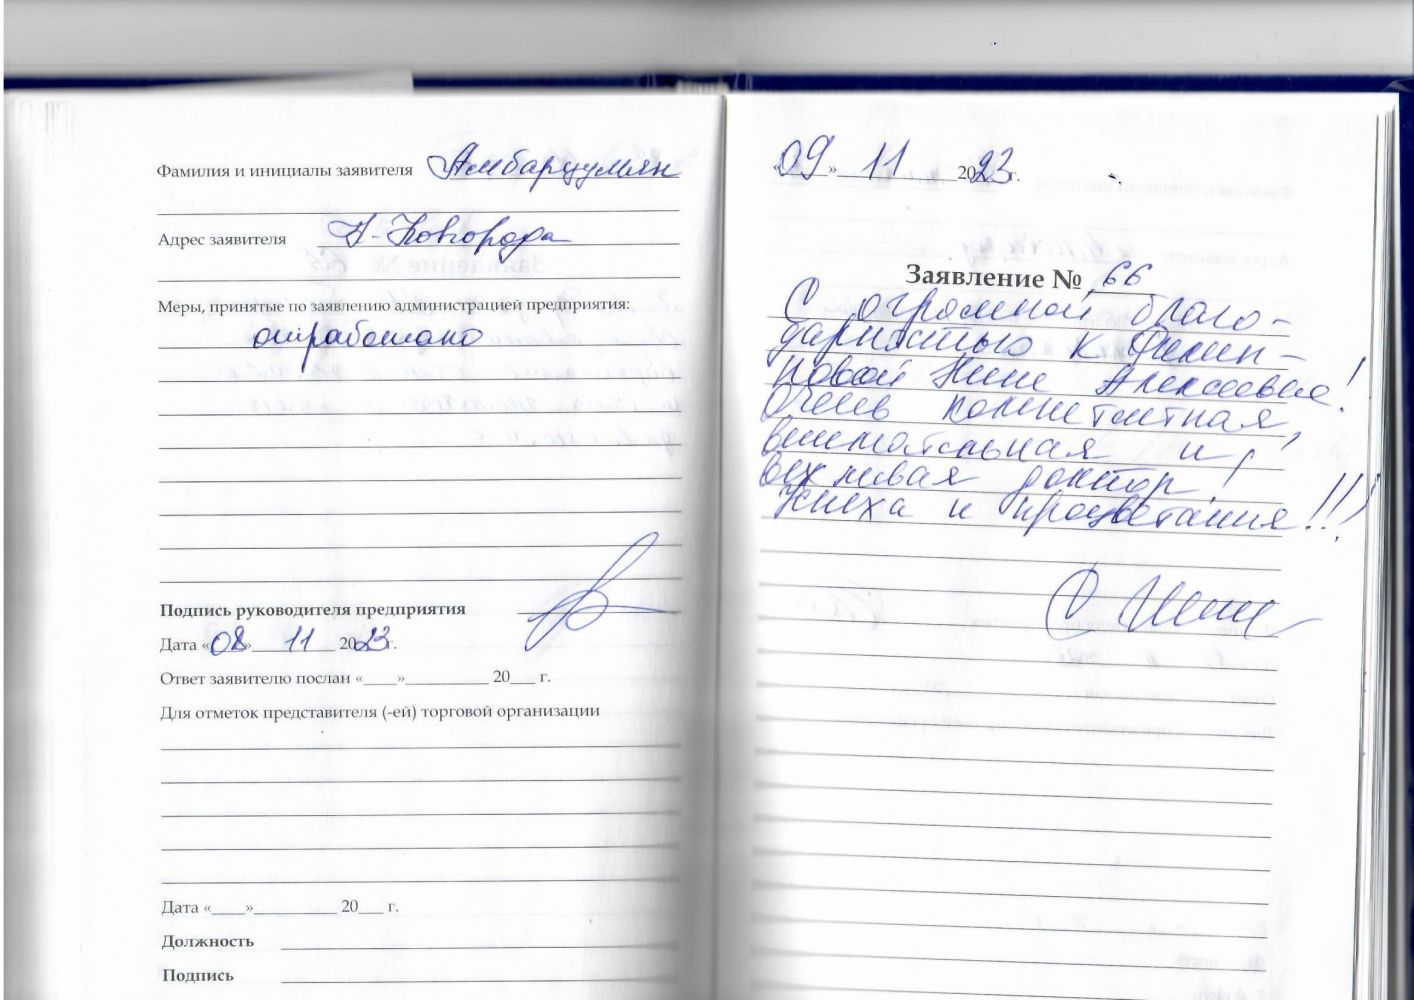 Фамилия и инициалы заявителя Амбарцумян
Адрес заявителя Н-Новгорода
Меры, принятые по заявлению администрацией предприятия:
отработано
Подпись руководителя предприятия
Дата «08» 11 2023г.
Ответ заявителю послан «____»__________ 20___ г.
Для отметок представителя (-ей) торговой организации
Дата «____»__________ 20___ г.
Должность
Подпись
«09» 11 2023г.
Заявление № 66
С огромной благо-
дарностью к Филип-
повой Нине Алексеевне!
Очень компетентная,
внимательная и
вежливая доктор!
Успеха и процветания!!!